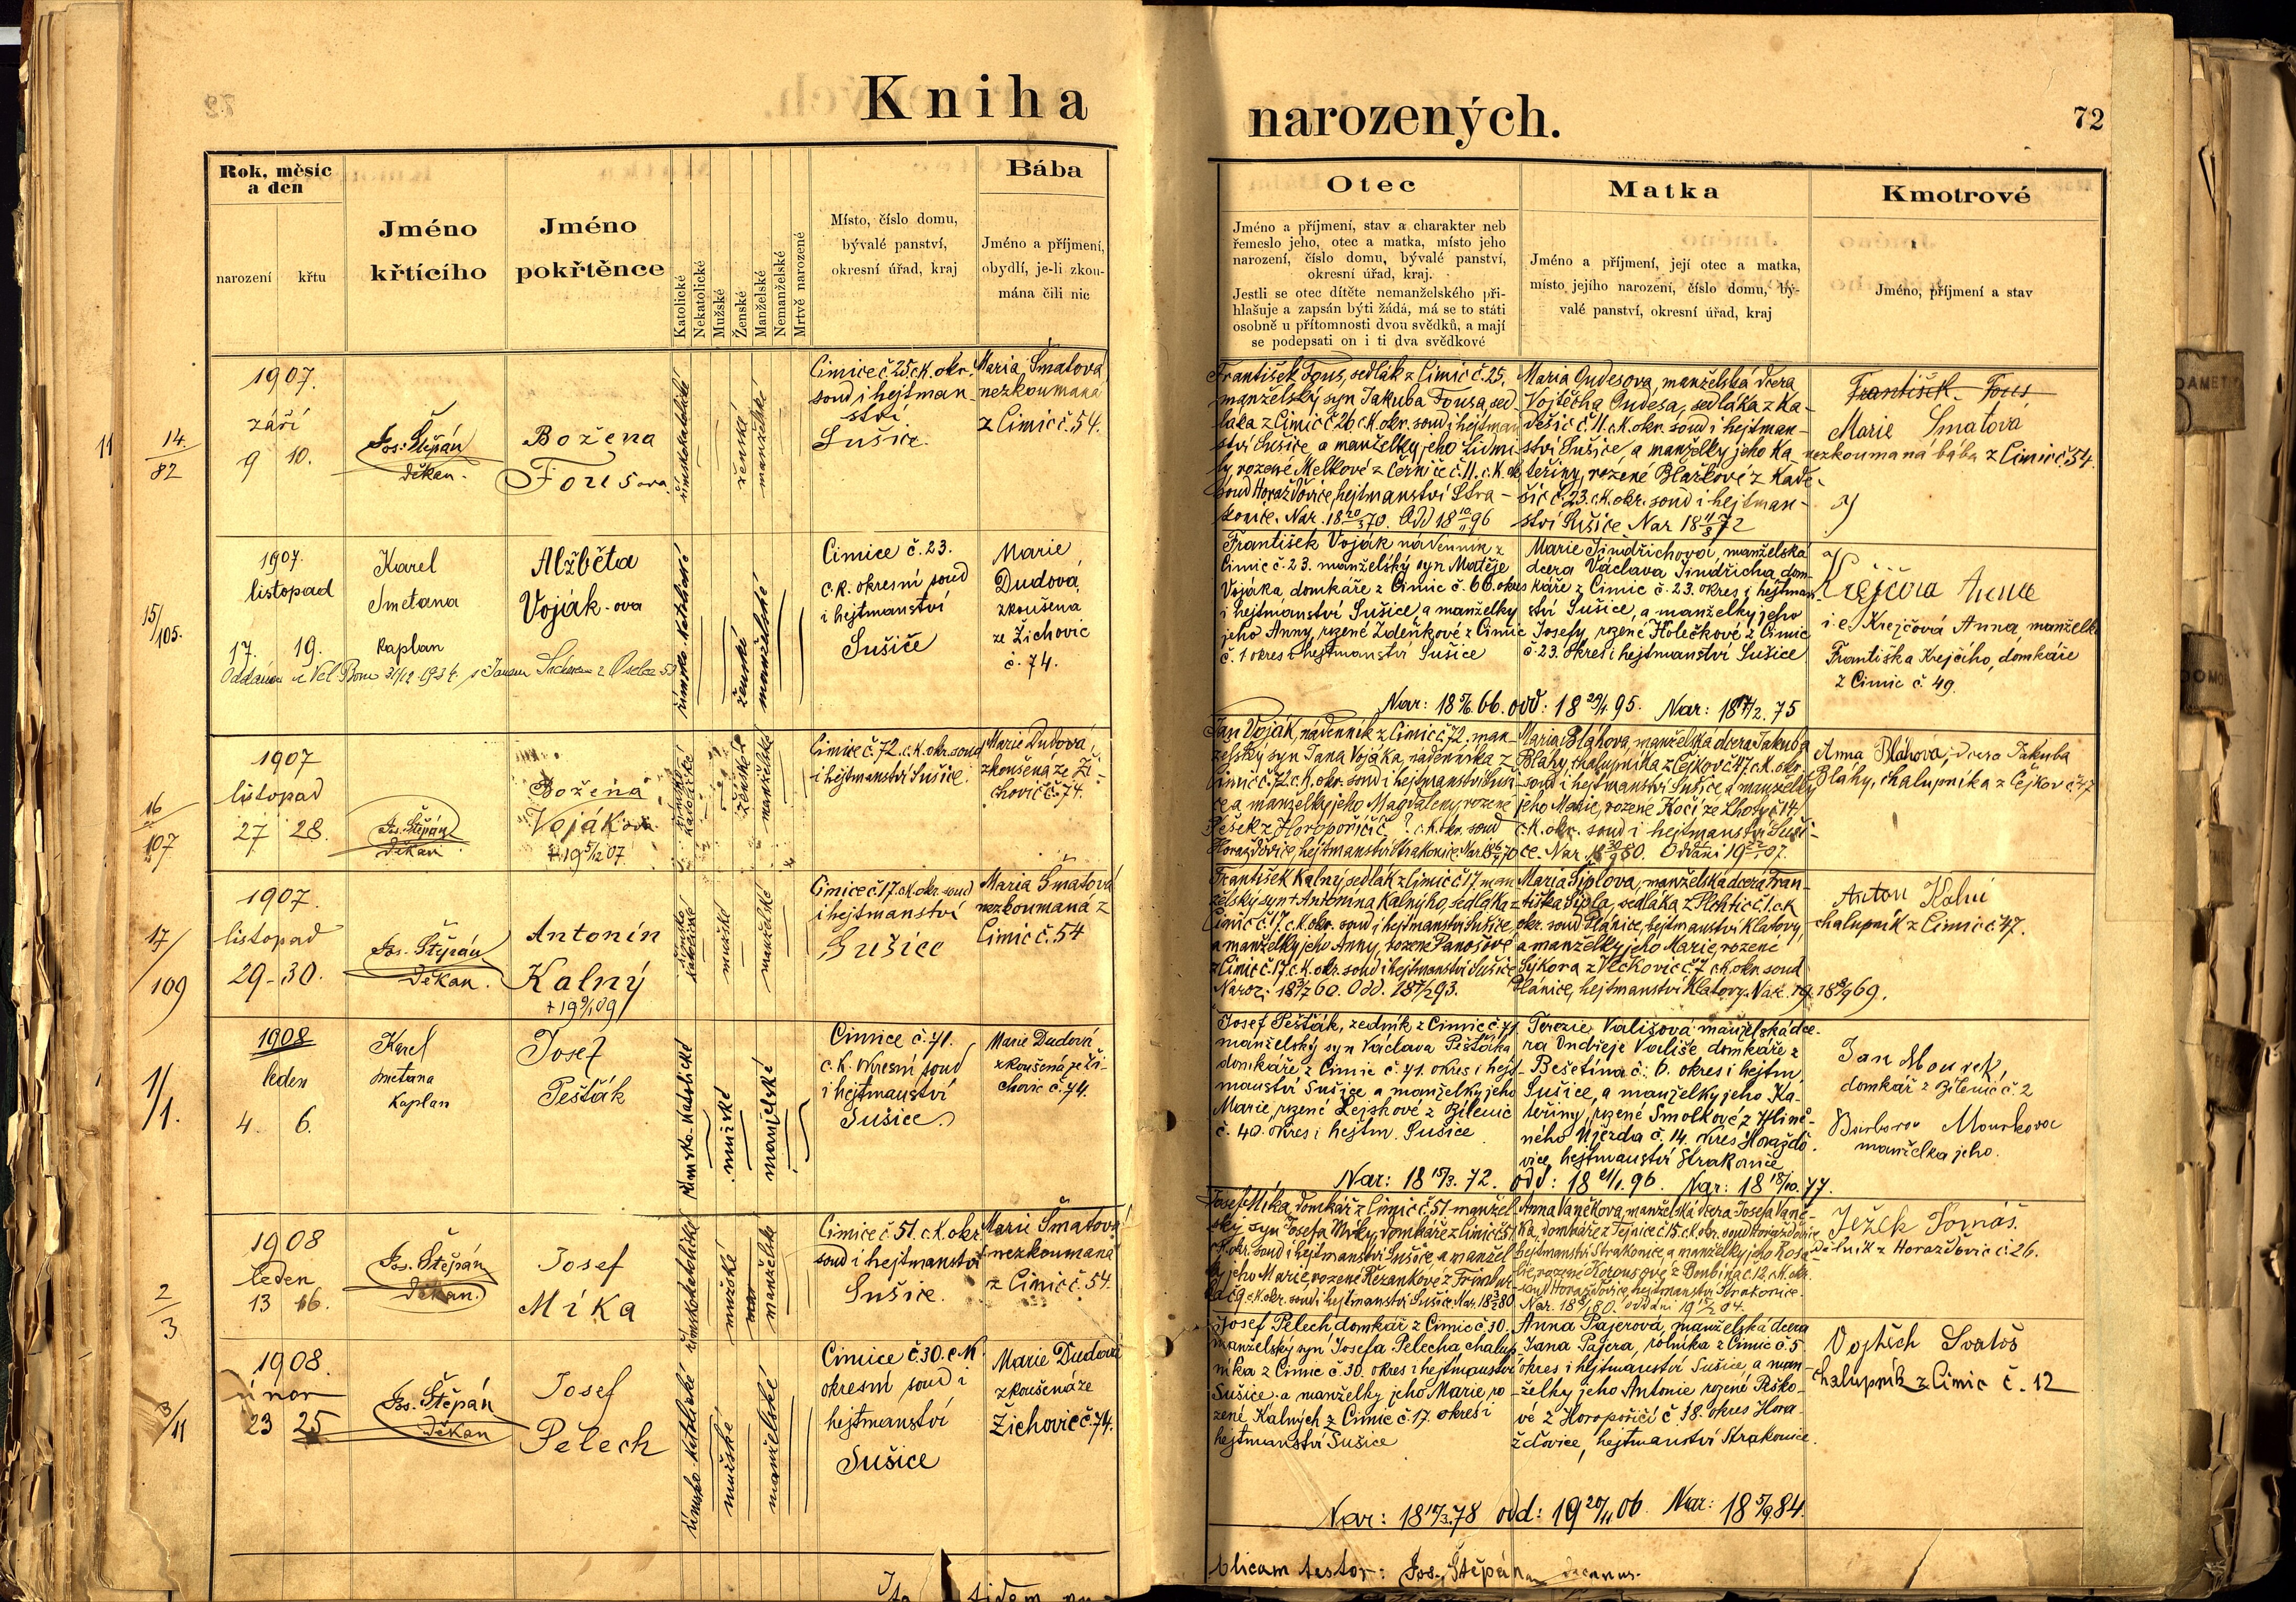 Kniha
narozených.
72
Rok, měsíc
a den
narození
křtu
Jméno
křtícího
Jméno
pokřtěnce
Katolické
Nekatolické
Mužské
Ženské
Manželské
Nemanželské
Mrtvě narozené
Místo, číslo domu,
bývalé panství,
okresní úřad, kraj
Bába
Jméno a příjmení,
obydlí, je-li zkou-
mána čili nic
Otec
Jméno a příjmení, stav a charakter neb
řemeslo jeho, otec a matka, místo jeho
narození, číslo domu, bývalé panství,
okresní úřad, kraj.
Jestli se otec dítěte nemanželského při-
hlašuje a zapsán býti žádá, má se to státi
osobně u přítomnosti dvou svědků, a mají
se podepsati on i ti dva svědkové
Matka
Jméno a příjmení, její otec a matka,
místo jejího narození, číslo domu, bý-
valé panství, okresní úřad, kraj
Kmotrové
Jméno, příjmení a stav
11
14/82
1907.
září
9 10.
Jos. Štěpán
děkan.
Božena
Fousova
římskokatolické
ženské
manželské
Cimice č 25 c.k. okr.
soud i hejtman-
ství
Sušice.
Maria Šmatová
nezkoumaná
z Cimic č. 54.
František Fous, sedlák z Cimic č. 25,
manželský syn Jakuba Fousa, sed-
láka z Cimic č 26 c.k. okr. soud i hejtman
ství Sušice a manželky jeho Lidmi-
ly, rozené Melkové z Černíče č. 11. c.k. ok
soud Horažďovice, hejtmanství Stra-
konice. Nar. 18 20/3 70. Odd 18 10/11 96
Maria Oudesova, manželská dcera
Vojtěcha Oudesa, sedláka z Ka-
dešic č. 11. c.k. okr. soud i hejtman-
ství Sušice, a manželky jeho Ka
teřiny, rozené Blažkové z Kade-
šic č. 23. c.k. okr. soud i hejtman-
ství Sušice Nar 18 11/8 72
František Fous
Marie Šmatová
nezkoumaná bába z Cimic č. 54.
15/105.
1907.
listopad
17. 19.
Karel
Smetana
kaplan
Alžběta
Voják-ova
římsko-katolické
ženské
manželské
Cimice č. 23.
c.k. okresní soud
i hejtmanství
Sušice
Marie
Dudová,
zkoušená
ze Žichovic
č. 74.
František Voják nádenník z
Cimic č. 23. manželský syn Matěje
Vojáka, domkáře z Cimic č. 66. okres
i hejtmanství Sušice, a manželky
jeho Anny, rozené Zdeňkové z Cimic
č. 1 okres i hejtmanství Sušice
Marie Jindřichova, manželská
dcera Václava Jindřicha, dom-
káře z Cimic č. 23. okres i hejtman
ství Sušice, a manželky jeho
Josefy, rozené Holečkové z Cimic
č. 23. okres i hejtmanství Sušice
Nar: 18 5/6. 66. odd: 18 29/4. 95. Nar: 18 17/2. 75
Krejčova Anna
i. e. Krejčová Anna, manželk
Františka Krejčího, domkáře
z Cimic č. 49.
16/107
1907
listopad
27 28.
Jos. Štěpán
děkan
Božena
Vojákova
† 19 5/12 07
římsko
katolické
ženské
manželské
Cimice č. 72. c.k. okr. soud
i hejtmanství Sušice.
Marie Dudová,
zkoušená ze Ži-
chovic č. 74.
Jan Voják, nádenník z Cimic č. 72. man-
želský syn Jana Vojáka, nádenníka z
Cimic č. 72 c.k. okr. soud i hejtmanství Suši-
ce a manželky jeho Magdaleny, rozené
Pešek z Horopořičíč. ? c.k. okr. soud
Horažďovice, hejtmanství Strakonice.
Maria Bláhova, manželská dcera Jakuba
Bláhy, chalupníka z Čejkov č. 47. c.k. okr.
soud i hejtmanství Sušice a manželky
jeho Marie, rozené Kočí, ze Lhoty č 14,
c.k. okr. soud i hejtmanství Suši-
ce. Nar. 18 30/9 80. Oddáni 19 22/1 07.
Anna Bláhová, dcera Jakuba
Bláhy, chalupníka z Čejkov č. 47
17/109
1907.
listopad
29-30.
Jos. Štěpán
děkan.
Antonín
Kalný
† 19 9/1 09
římsko
katolické
mužské
manželské
Cimice č 17. c.k. okr. soud
i hejtmanství
Sušice
Maria Šmatová
nezkoumaná z
Cimic č. 54
František Kalný, sedlák z Cimic č 17, man
želský syn † Antonína Kalnýho, sedláka z
Cimic č. 17, c.k. okr. soud i hejtmanství Sušice,
a manželky jeho Anny, rozené Panošové
z Cimic č. 17. c.k. okr. soud i hejtmanství Sušice
Maria Šiplova, manželská dcera Fran-
tiška Šipla, sedláka z Plichtic č. 1 c.k.
okr. soud Plánice, hejtmanství Klatovy,
a manželky jeho Marie, rozené
Sýkora z Vlčkovic č. 7 c.k. okr. soud
Plánice, hejtmanství Klatovy.
Anton Kalní
chalupník z Cimic č. 47.
1/1.
1908
leden
4. 6.
Karel
Smetana
kaplan
Josef
Pešťák
římsko-katolické
mužské
manželské
Cimice č. 71.
c.k. okresní soud
i hejtmanství
Sušice.
Marie Dudová
zkoušená ze Ži-
chovic č. 74.
Josef Pešťák, zedník z Cimic č. 71
manželský syn Václava Pešťáka
domkáře z Cimic č. 71. okres i hejt-
manství Sušice a manželky jeho
Marie, rozené Lejskové z Bílenic
č. 40. okres i hejtm. Sušice
Terezie Vališová manželská dce-
ra Ondřeje Vališe domkáře z
Bešetína č. 6. okres i hejtm.
Sušice, a manželky jeho Ka-
teřiny, rozené Smolkové z Hlině-
ného Újezda č. 14. okres Horažďo-
vice, hejtmanství Strakonice
Nar: 18 15/3. 72. odd: 18 21/1. 96. Nar: 18 18/10. 77.
Jan Mourek,
domkář z Bílenic č. 2
Barbora Mourkova
manželka jeho.
2/3
1908
leden
13 16.
Jos. Štěpán
děkan.
Josef
Míka
římskokatolické
mužské
manželské
Cimice č 51. c.k. okr.
soud i hejtmanství
Sušice.
Marie Šmatová
nezkoumaná
z Cimic č. 54.
Josef Míka, domkář z Cimic č. 51 manžel
ský syn Josefa Míky, domkáře z Cimic č 51
c.k. okr. soud i hejtmanství Sušice a manžel
ky jeho Marie, rozené Řezankové z
č 9 c.k. okr. soud i hejtmanství Sušice. Nar. 18 3/2 80
Anna Vaněkova, manželská dcera Josefa Vaně-
ka, domkáře z Tejnice č 15. c.k. okr. soud Horažďovice
hejtmanství Strakonice, a manželky jeho Rosa-
lie, rozené z Bombína č. 12, c.k. okr.
soud Horažďovice, hejtmanství Strakonice.
Ježek Tomáš.
dělník z Horažďovic č. 26.
3/11
1908.
únor
23 25
Jos. Štěpán
děkan
Josef
Pelech
římsko-katolické
mužské
manželské
Cimice č. 30. c.k.
okresní soud i
hejtmanství
Sušice
Marie Dudová
zkoušená ze
Žichovic č. 74.
Josef Pelech domkář z Cimic č. 30.
manželský syn Josefa Pelecha chalup-
níka z Cimic č. 30. okres i hejtmanství
Sušice a manželky jeho Marie, ro-
zené Kalných z Cimic č. 17. okres i
hejtmanství Sušice
Anna Pajerová, manželská dcera
Jana Pajera, rolníka z Cimic č. 5
okres i hejtmanství Sušice, a man-
želky jeho Antonie rozené Peško-
vé z Horopořičí č. 18. okres Hora-
žďovice, hejtmanství Strakonice.
Nar: 18 17/3. 78 odd: 19 20/11. 06. Nar: 18 5/9. 84.
Vojtěch Svatoš
chalupník z Cimic č. 12
blicam testor: Jos. Štěpán decanus.